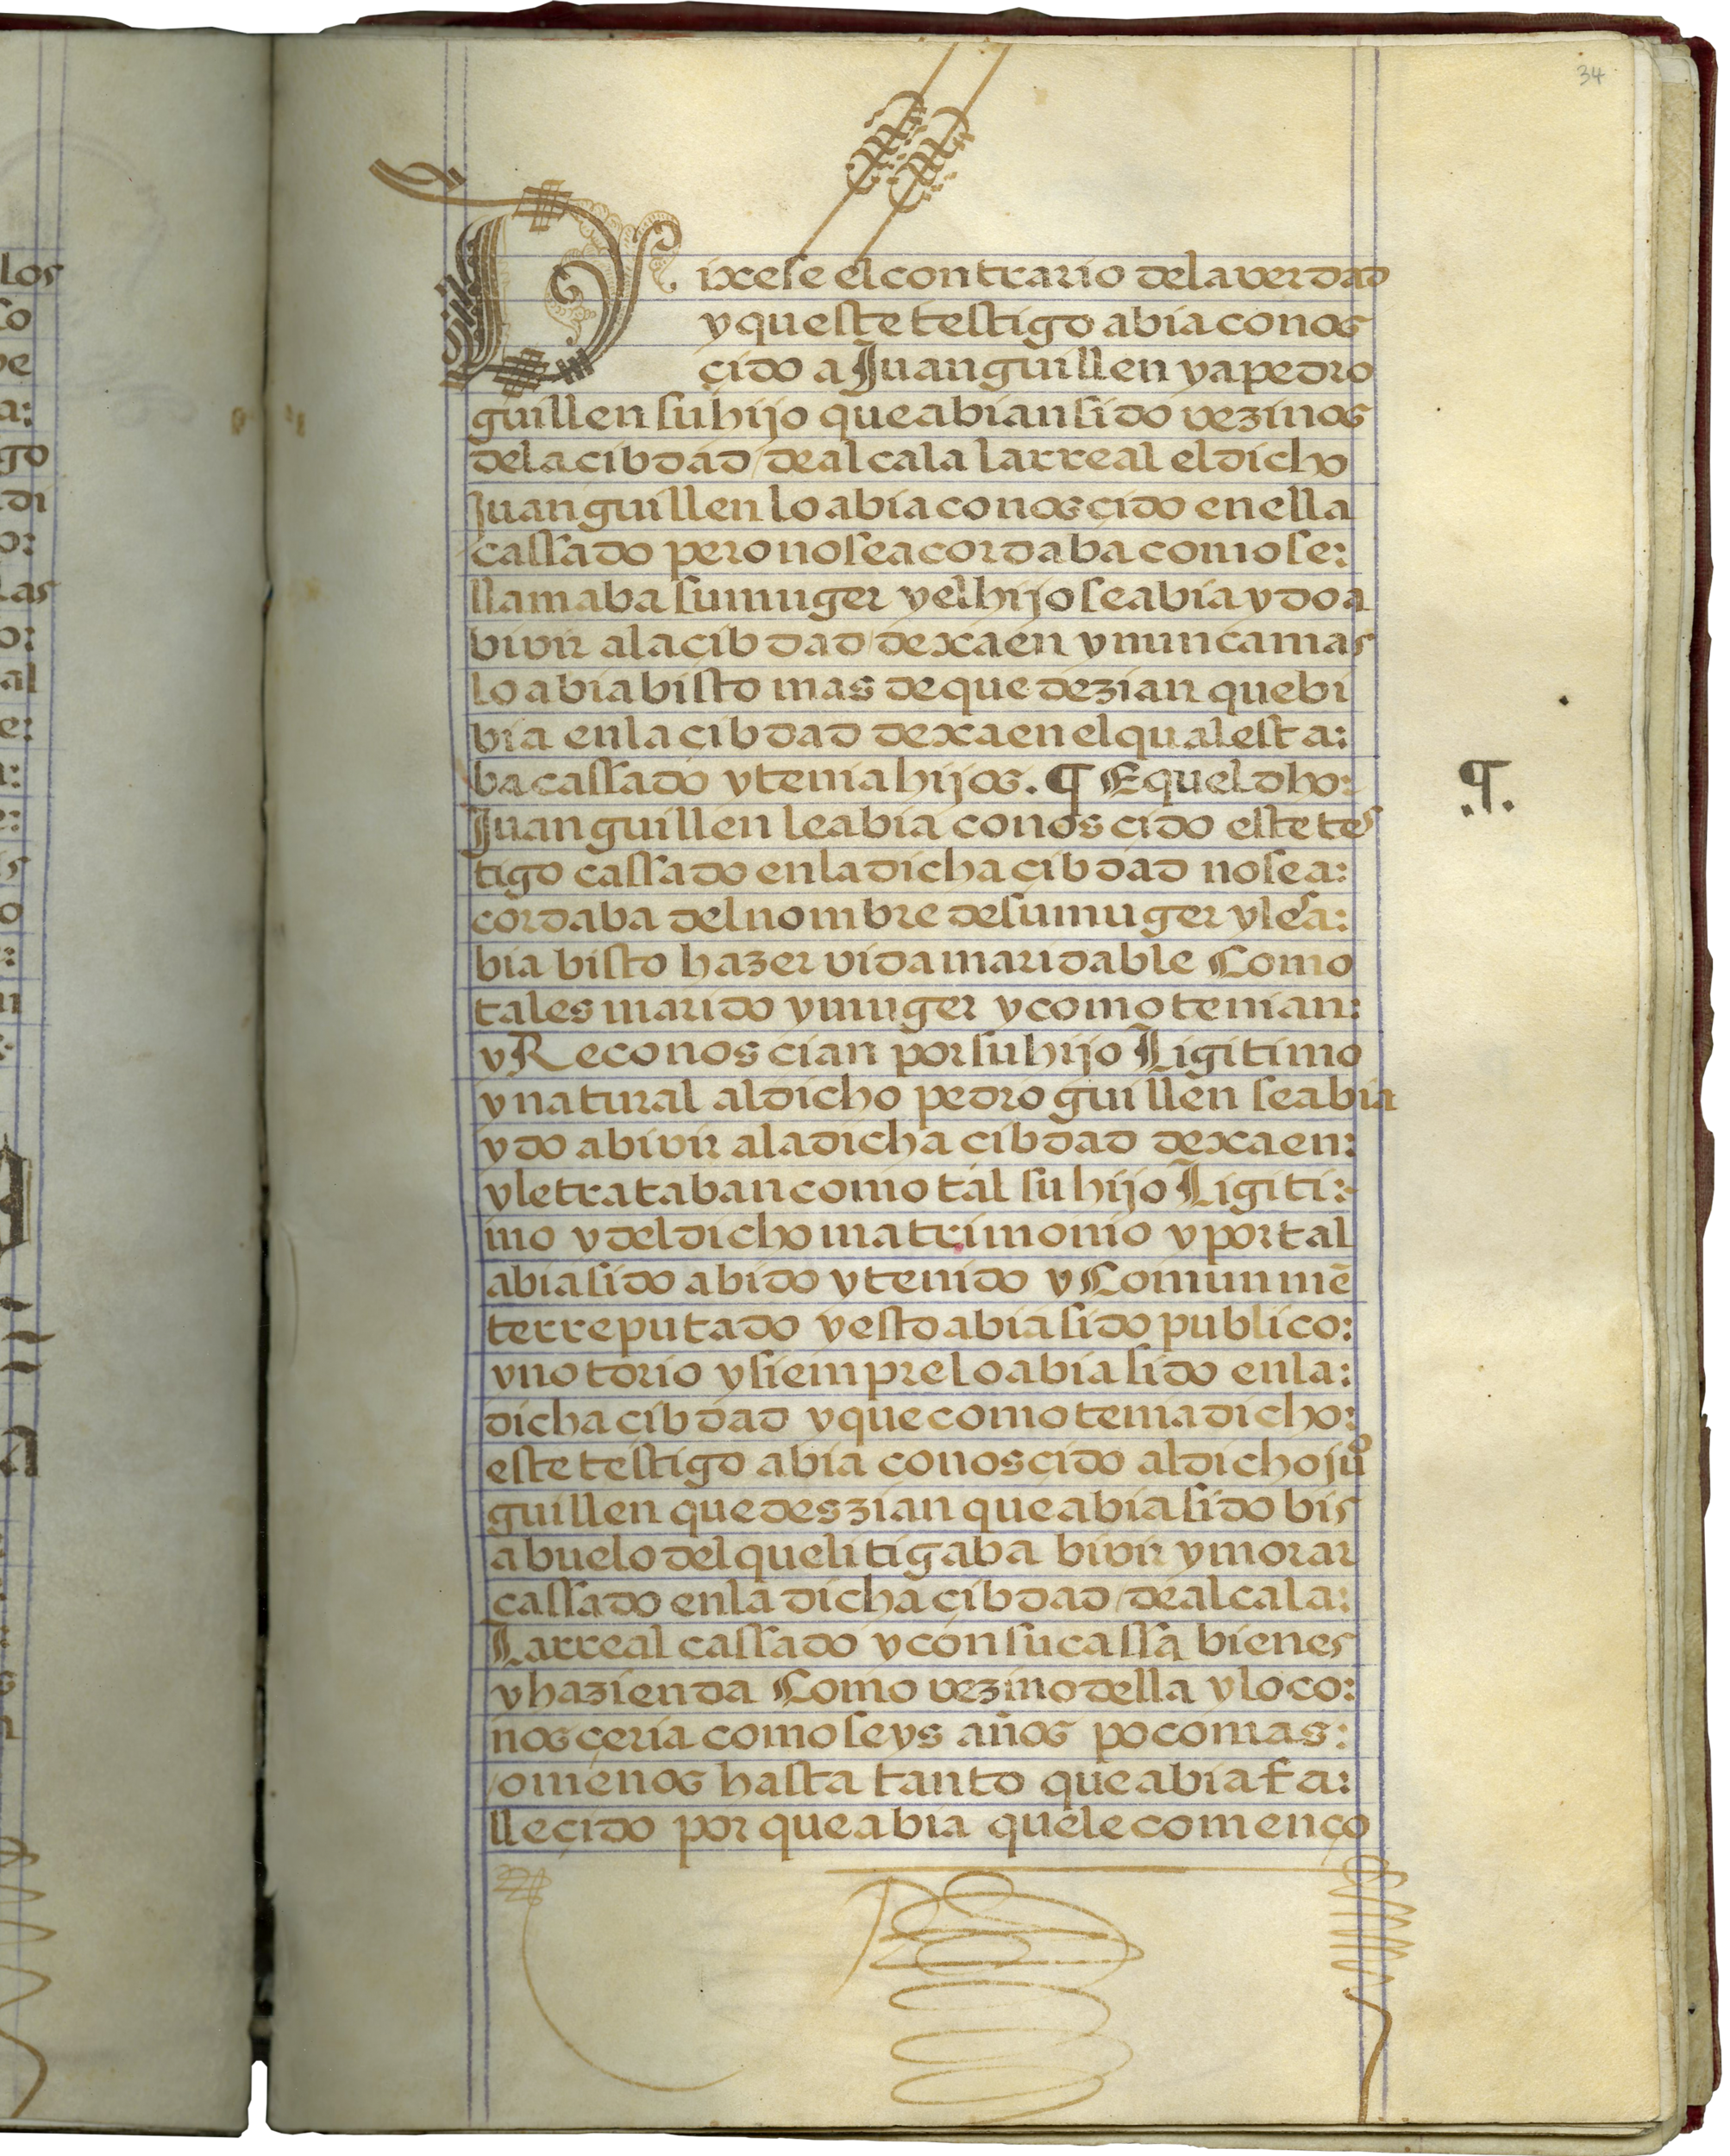 34
Dixese el contrario dela verdad
y queste testigo abia conos
çido a Juan guillen y a pedro
guillen su hijo que abian sido vezinos
dela cibdad de alcala larreal el dicho
Juan guillen lo abia conosçido en ella
cassado pero no se acordaba como se:
llamaba su muger y el hijo se abia ydo a
bivir ala cibdad de xaen y nunca mas
lo abia bisto mas de que dezian que bi
bia en la çibdad de xaen el qual esta:
ba cassado y tenia hijos. ¶ E quel dho:
Juan guillen le abia conosçido este tes
tigo cassado en la dicha çibdad no se a:
cordaba del nombre de su muger y les a:
bia bisto hazer vida maridable Como
tales marido y muger y como tenian:
y Reconoscian por su hijo Ligitimo
y natural al dicho pedro guillen se abia
ydo a bivir ala dicha cibdad de xaen:
y le trataban como tal su hijo Ligiti:
mo y del dicho matrimonio y por tal
abia sido abido y tenido y Comunmē
te rreputado y esto abia sido publico:
y notorio y siempre lo abia sido en la:
dicha cibdad y que como tenia dicho:
este testigo abia conosçido al dicho juº
guillen que deszian que abia sido bis
abuelo del que litigaba bivir y morar
cassado en la dicha çibdad de alcala:
Larreal cassado y con su cassa bienes
y hazienda Como vezino della y lo co:
nosçeria como seys años poco mas:
o menos hasta tanto que abia fa:
lleçido por que abia quele començo
los
go
di
las
al
¶.